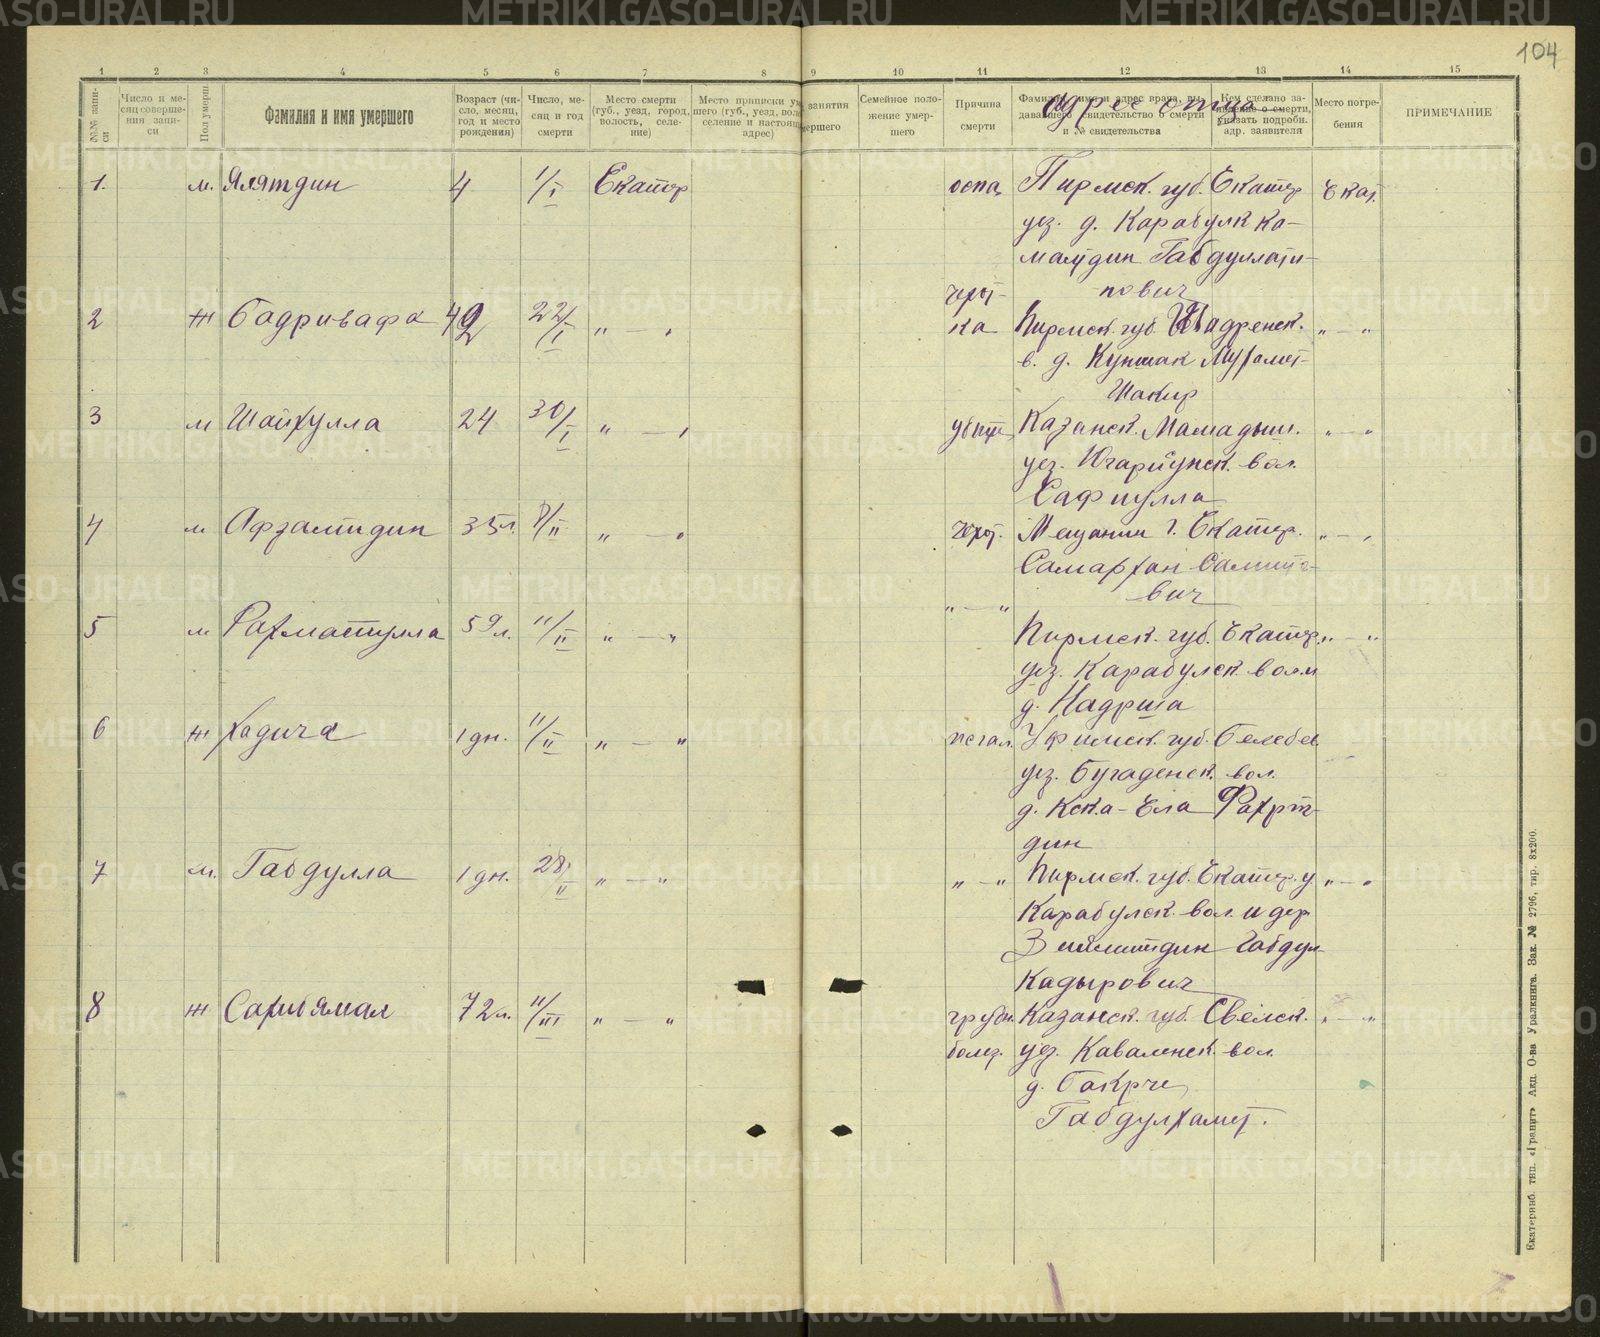 104
1 2 3 4 5 6 7 8 9 10 11 12 13 14 15
№№ записи
Число и месяц совершения записи
Пол умерш.
Фамилия и имя умершего
Возраст (число, месяц, год и место рождения)
Число, месяц и год смерти
Место смерти (губ., уезд, город, волость, селение)
Место приписки умершего (губ., уезд, вол. селение и настоящ. адрес)
занятия умершего
Семейное положение умершего
Причина смерти
Фамилия, имя и адрес врача, выдавшего свидетельство о смерти и № свидетельства
адрес отца
Кем сделано заявление о смерти, указать подробн. адр. заявителя
Место погребения
ПРИМЕЧАНИЕ
1. м. Ялятдин 4 1/I Екатер оспа Пермск. губ. Екатер Екат.
уез. д. Карабулк Ка-
малтдин Габдуллати-
пович
2 ж Бадривафа 42 22/I " — " чахот-
ка Пермск. губ. Шадренск. " — "
в. д. Куншак Мухамет-
Шакир
3 м Шайхулла 24 30/I " — " убит Казанск. Мамадыш. " — "
уез. вол.
Сафиулла
4 м Афзалтдин 35 л. /II " — " чахот. Мещанин г. Екатер. " — "
Самархан
вич
5 м Рахматулла 59 л. 11/II " — " " — " Пермск. губ. Екатер. " — "
уез. Карабулск. вол. и
д. Надрша
6 ж Хадича 1 дн. 11/II " — " Уфимск. губ. Белебеев.
уез. Бугаденск. вол.
д. Кска-Ела Фахрт-
дин
7 м. Габдулла 1 дн. 28/II " — " " — " Пермск. губ. Екатер. у " — "
Карабулск. вол. и дер
Габдул
Кадырович
8 ж Сахибямал 72 л. 11/III " — " грудн. Казанск. губ. Свеяск. " — "
болез. уез. Каваленск. вол.
д. Бакрче
Габдулхамет.
Екатеринб. тип. «Гранит» Акц. О-ва Уралкнига. Зак. № 2796, тир. 8х200.
METRIKI.GASO-URAL.RU